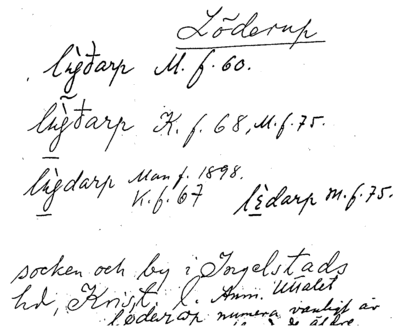 Löderup
lùg̃ðarp M. f. 60.
lùg̃ðarp K. f. 68, M. f. 75.
lùgdarp Man f. 1898. K. f. 67
lèdarp M. f. 75.
socken och by i Ingelstads
hd, Krist. l. Anm. Uttalet
löderop numera vanligt av